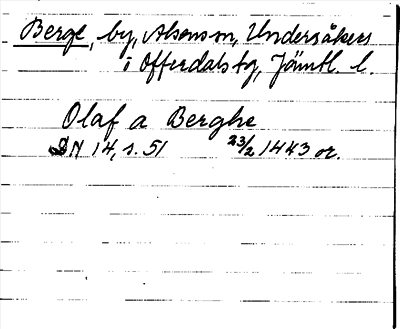 Berge, by, Alsenson, Undersåkers
i Offerdals tg, Jämtl. l.
Olaf a Berghe
DN 14, s. 51 23/2 1443 or.